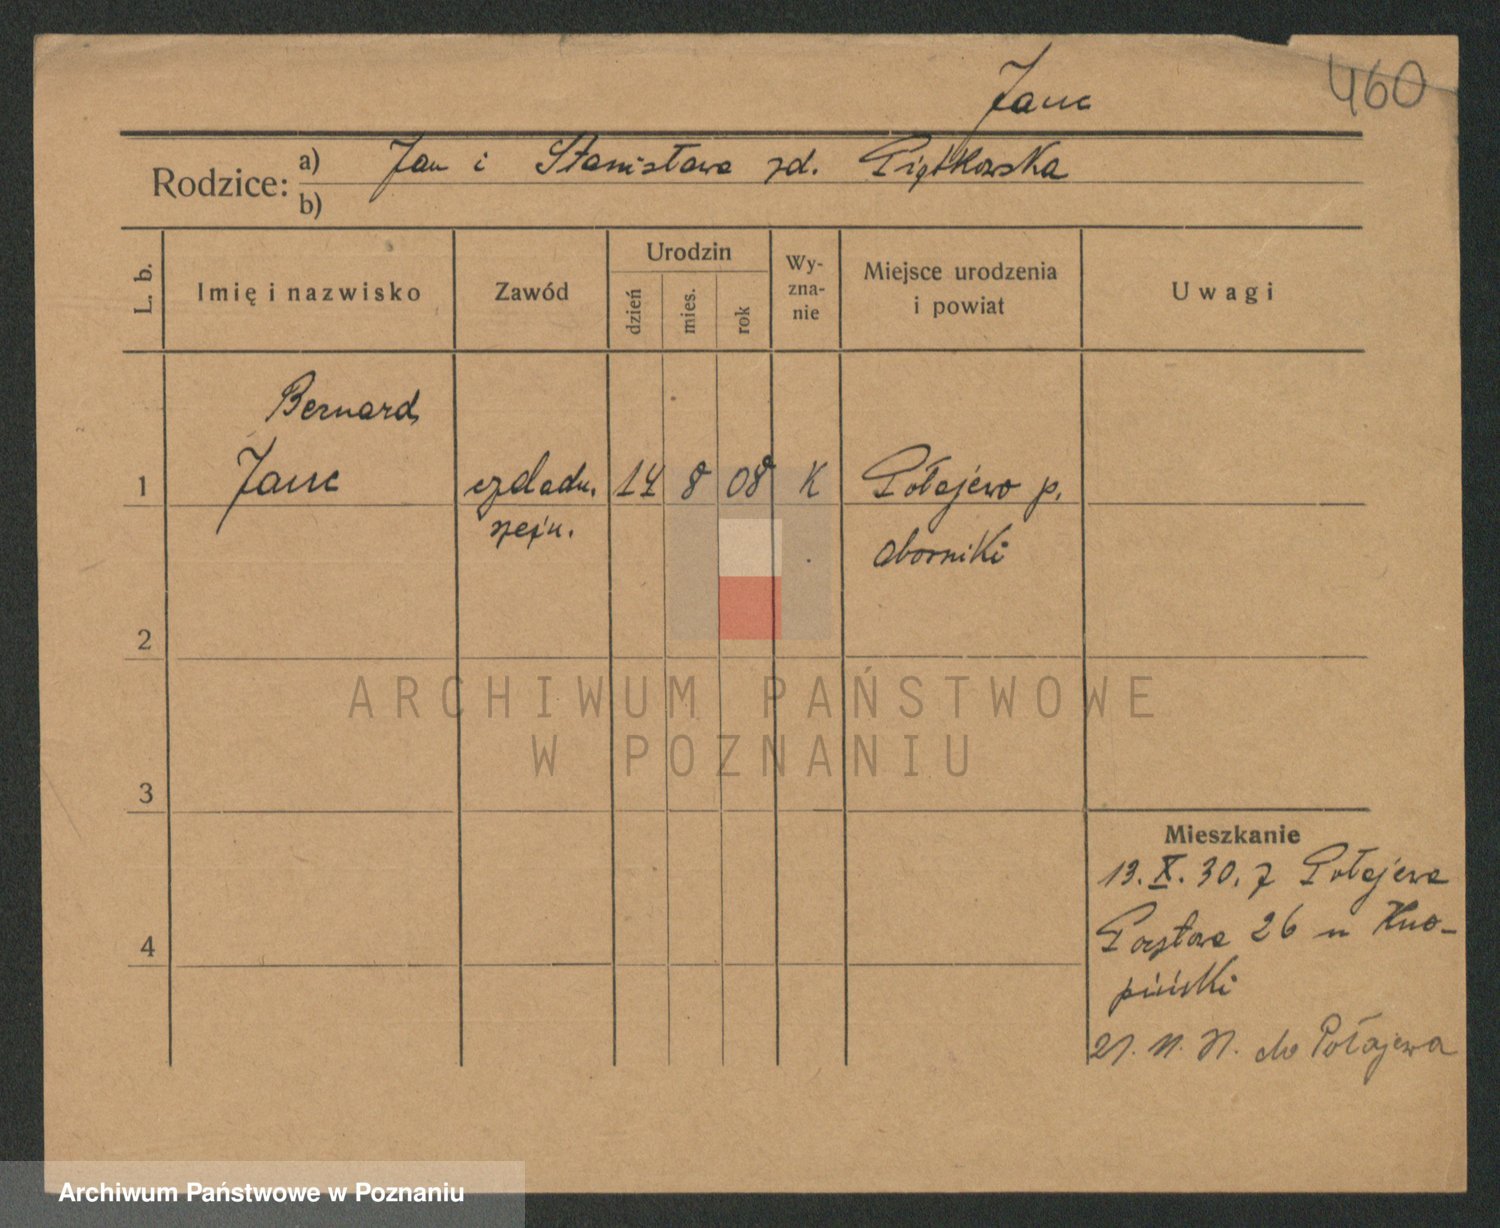 Janc 460
Rodzice: a) Jan i Stanisława zd. Piątkowska
b)
L. b. Imię i nazwisko Zawód Urodzin dzień mies. rok Wyznanie Miejsce urodzenia i powiat Uwagi
Bernard
1 Janc czeladn. 14 8 08 K Połajewo p.
rzeźn. Oborniki
2
3
4
Mieszkanie
13.X.30. z Połajewa
Pocztowa 26 u Kno-
piński
do Połajewa
ARCHIWUM PAŃSTWOWE
W POZNANIU
Archiwum Państwowe w Poznaniu